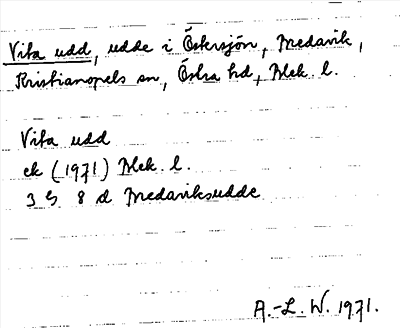 Vita udd, udde i Östersjön, Medavik,
Kristianopels sn, Östra hd, Blek. l.
Vita udd
ek (1971) Blek. l.
3 G 8 d Medaviksudde
A.-L. W. 1971.